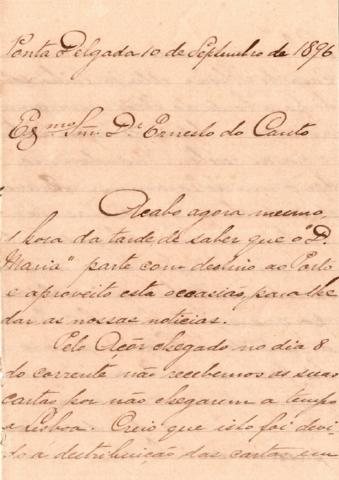 Ponta Delgada 10 de Septembro de 1896
Exmo Snr. Dr. Ernesto do Canto
Acabo agora mesmo,
1 hora da tarde, de saber que o "D.
Maria" parte com destino ao Porto
e aproveito esta occasião para lhe
dar as nossas noticias.
Pelo Açôr chegado no dia 8
do corrente não recebemos as suas
cartas por não chegarem a tempo
a Lisboa. Creio que isto foi devi-
do á destribuição das cartas em